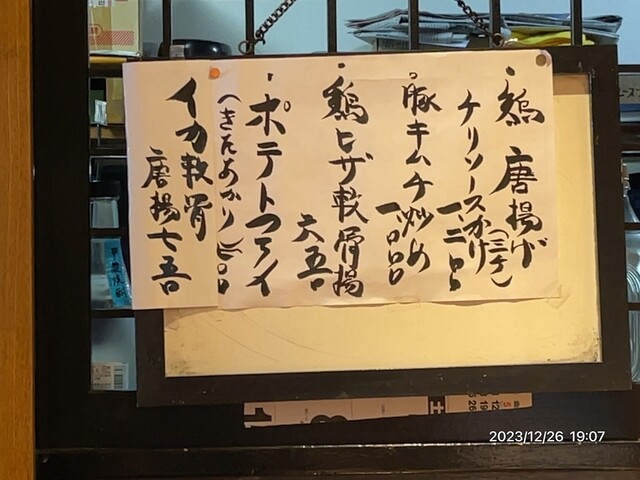 ・鶏 唐揚げ
チリソースかけ(ミナミ)
一、二〇〇
・豚キムチ炒め
一、〇〇〇
・鶏ヒザ軟骨揚
六五〇
・ポテトフライ
(きたあかり)
イカ軟骨
唐揚 七五〇
2023/12/26 19:07